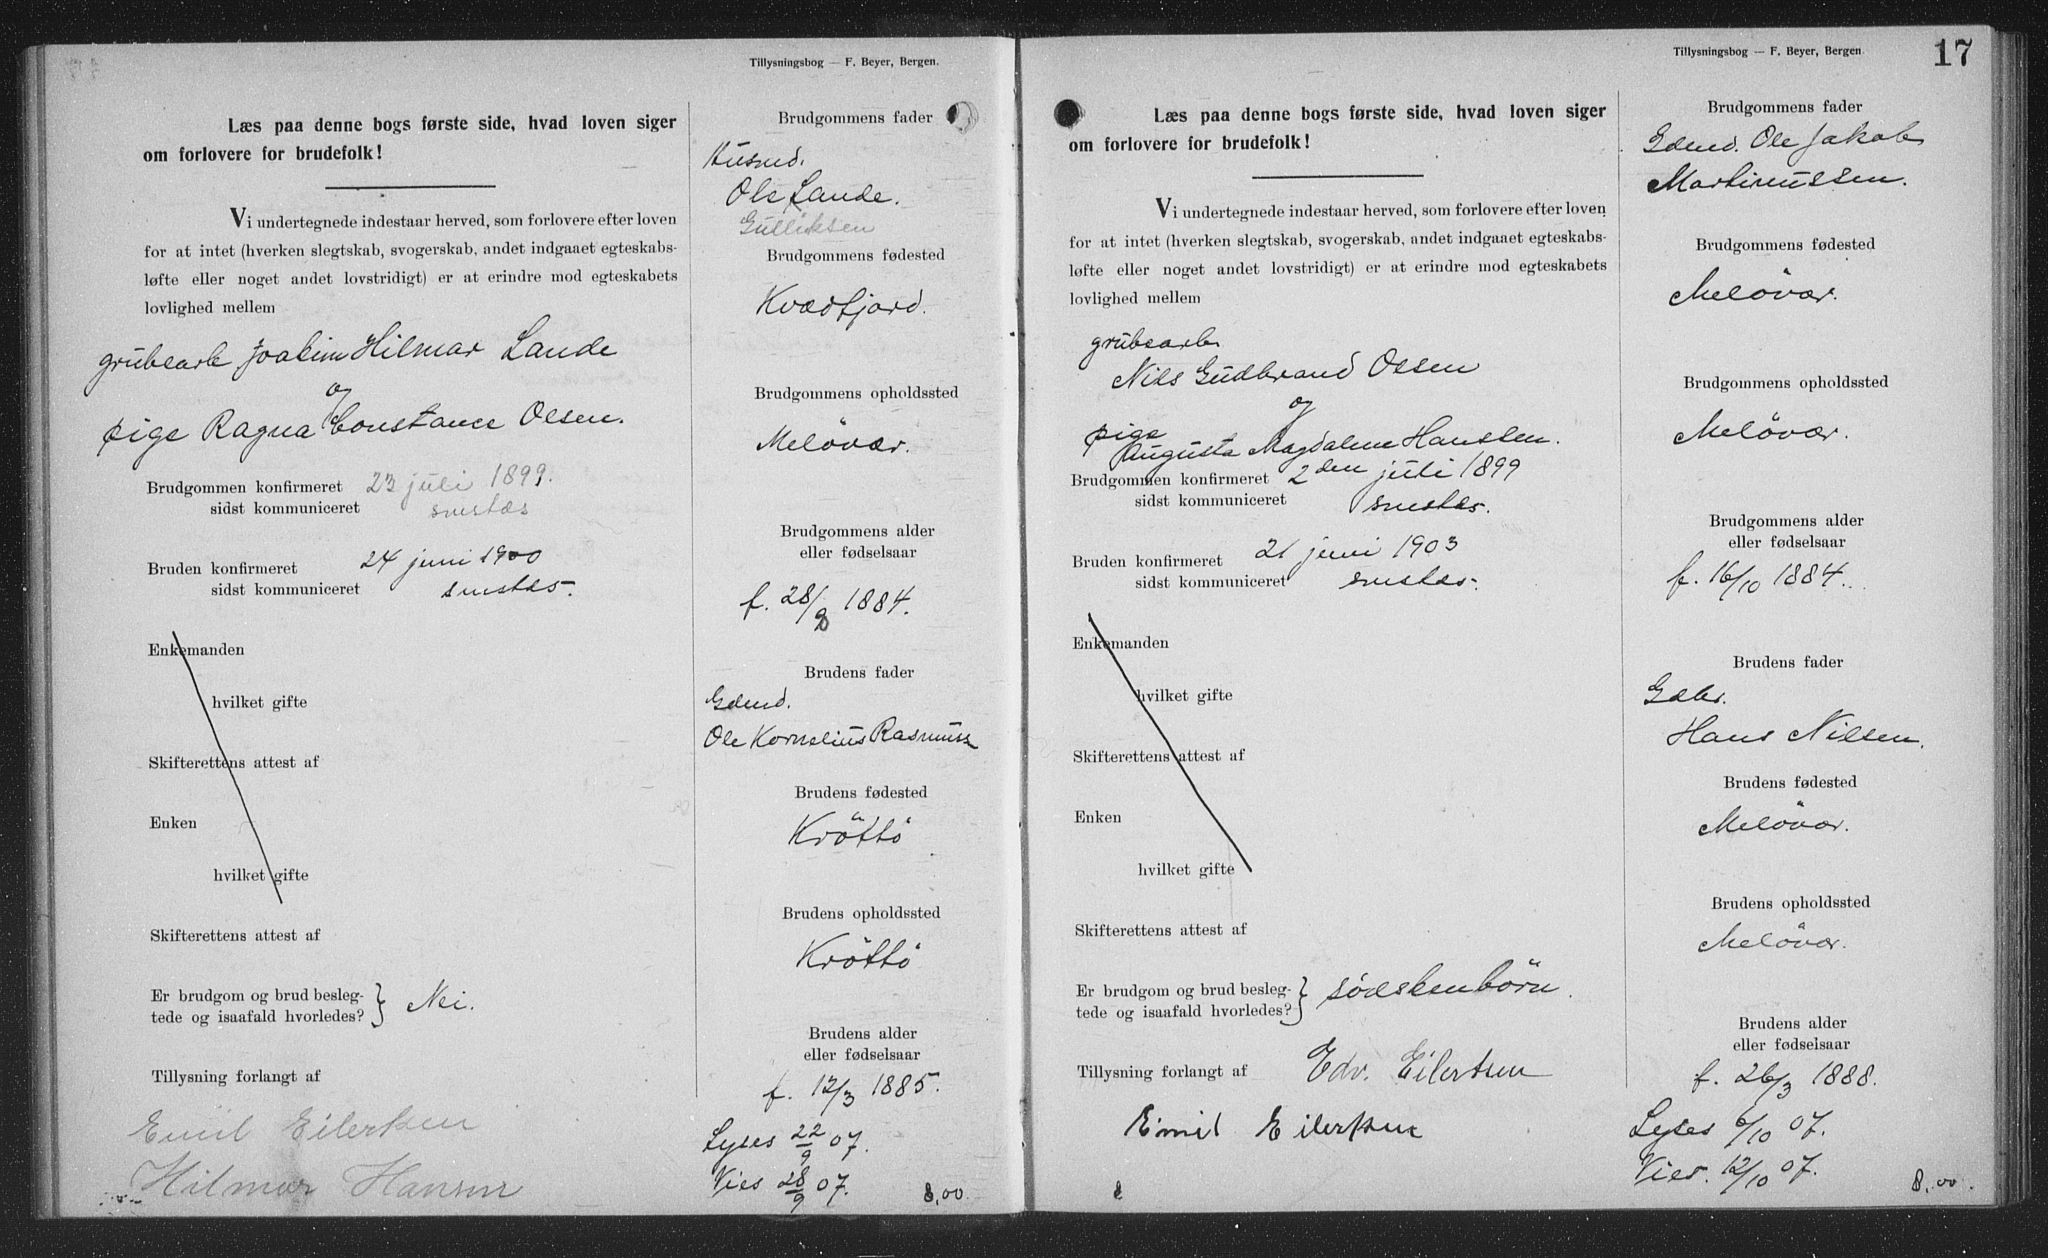 Tillysningsbog — F. Beyer, Bergen.
Læs paa denne bogs første side, hvad loven siger
om forlovere for brudefolk!
Vi undertegnede indestaar herved, som forlovere efter loven
for at intet (hverken slegtskab, svogerskab, andet indgaaet egteskabs-
løfte eller noget andet lovstridigt) er at erindre mod egteskabets
lovlighed mellem
grubearb Joakim Hilmar Lande
og
pige Ragna Constance Olsen.
Brudgommen konfirmeret 23 juli 1899.
sidst kommuniceret smstds
Bruden konfirmeret 24 juni 1900
sidst kommuniceret smstds.
Enkemanden
hvilket gifte
Skifterettens attest af
Enken
hvilket gifte
Skifterettens attest af
Er brudgom og brud besleg-
tede og isaafald hvorledes? } Nei.
Tillysning forlangt af
Emil Eilertsen
Hilmar Hansen
Brudgommens fader
Husmd.
Ole Lande.
Gulliksen
Brudgommens fødested
Kvædfjord.
Brudgommens opholdssted
Meløvær.
Brudgommens alder
eller fødselsaar
f. 28/9 1884.
Brudens fader
Gdmd.
Ole Kornelius Rasmuss
Brudens fødested
Krøttø
Brudens opholdssted
Krøttø
Brudens alder
eller fødselsaar
f. 12/3 1885.
Lyses 22/9 07.
Vies 28/9 07.
8,00.
Tillysningsbog — F. Beyer, Bergen.
17
Læs paa denne bogs første side, hvad loven siger
om forlovere for brudefolk!
Vi undertegnede indestaar herved, som forlovere efter loven
for at intet (hverken slegtskab, svogerskab, andet indgaaet egteskabs-
løfte eller noget andet lovstridigt) er at erindre mod egteskabets
lovlighed mellem
grubearb
Nils Gudbrand Olsen
og
pige
Augusta Magdalene Hanssen.
Brudgommen konfirmeret 2den juli 1899
sidst kommuniceret smstds.
Bruden konfirmeret 21 juni 1903
sidst kommuniceret smstds.
Enkemanden
hvilket gifte
Skifterettens attest af
Enken
hvilket gifte
Skifterettens attest af
Er brudgom og brud besleg-
tede og isaafald hvorledes? } södskenbörn.
Tillysning forlangt af Edv. Eilertsen
Emil Eilertsen
Brudgommens fader
Gdmd. Ole Jakob
Martinussen.
Brudgommens fødested
Meløvær.
Brudgommens opholdssted
Meløvær.
Brudgommens alder
eller fødselsaar
f. 16/10 1884.
Brudens fader
Gdbr.
Hans Nilsen.
Brudens fødested
Meløvær.
Brudens opholdssted
Meløvær.
Brudens alder
eller fødselsaar
f. 26/3 1888.
Lyses 6/10 07.
Vies. 12/10 07.
8,00.